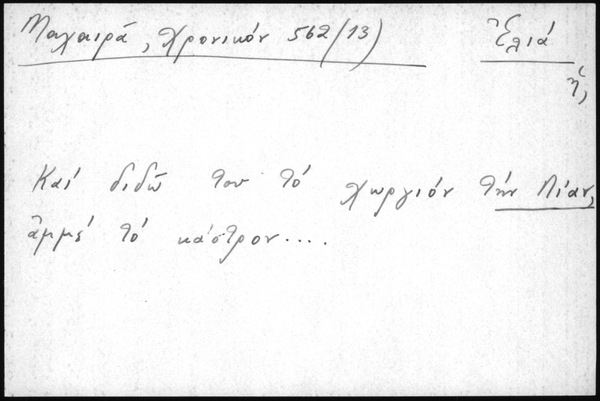 Μαχαιρά, Χρονικόν 562/13) Ἐλιά
ἡ,
Καί διδῶ του τό χωργιόν τήν Λίαν,
ἀμμέ τό κάστρον....